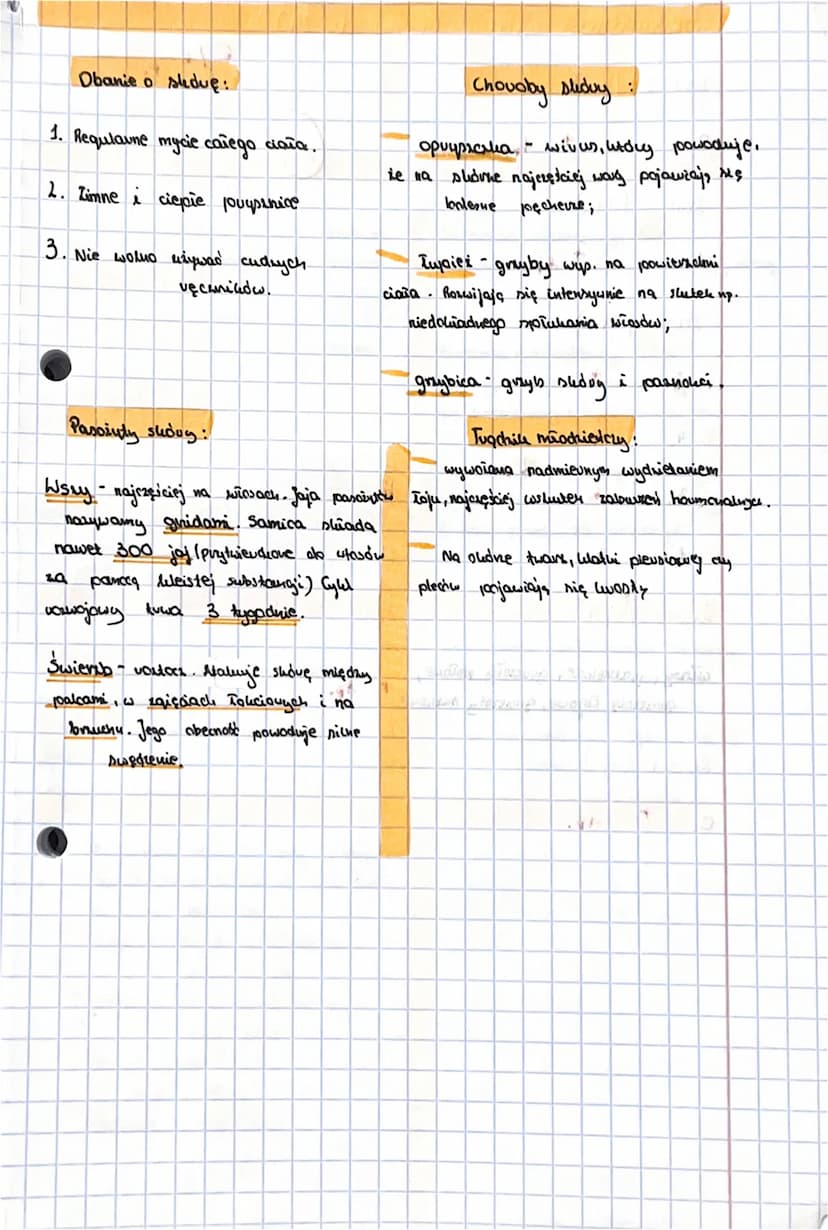 Dbanie o skórę:
1. Regularne mycie całego ciała.
2. Zimne i ciepłe prysznice
3. Nie wolno używać cudzych
ręczników.
Pasożyty skóry:
Wszy - najczęściej na włosach. Jaja pasożytów
nazywamy gnidami. Samica składa
nawet 300 jaj (przytwierdzone do włosów
za pomocą kleistej substancji) Cykl
rozwojowy trwa 3 tygodnie.
Świerzb - roztocz. Atakuje skórę między
palcami, w zgięciach łokciowych i na
brzuchu. Jego obecność powoduje silne
swędzenie.
Choroby skóry :
opryszczka - wirus, który powoduje,
że na skórze najczęściej warg pojawiają się
bolesne pęcherze;
Łupież - grzyby wyp. na powierzchni
ciała. Rozwijają się intensywnie na skutek np.
niedokładnego spłukania włosów;
grzybica - grzyb skóry i paznokci.
Trądzik młodzieńczy:
wywołana nadmiernym wydzielaniem
łoju, najczęściej wskutek zaburzeń hormonalnych.
Na skórze twarz, klatki piersiowej czy
pleców pojawiają się krosty